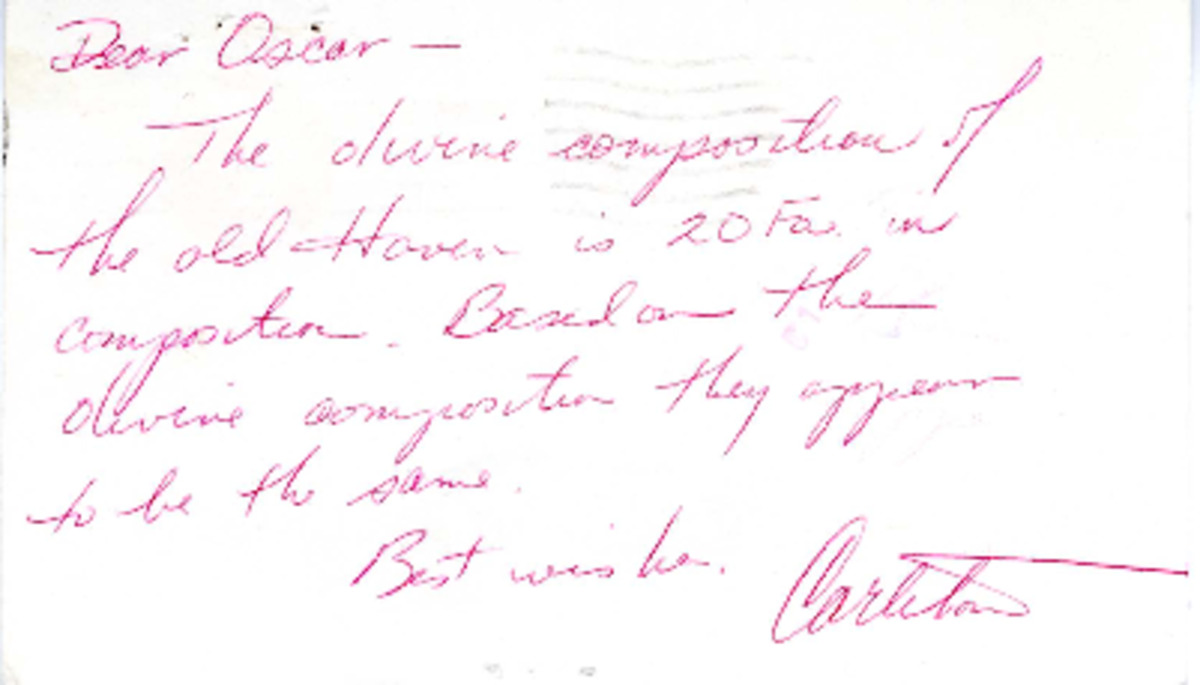 Dear Oscar —
The olivine composition of
the old Haven is 20 Fa. in
composition. Based on the
olivine composition they appear
to be the same.
Best wishes.
Carleton